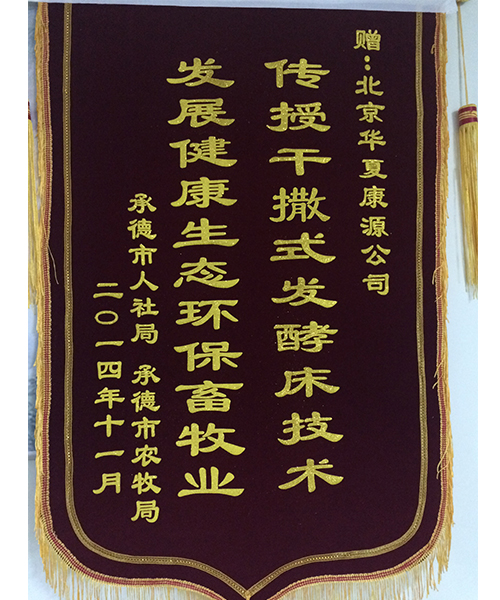 赠：北京华夏康源公司
传授干撒式发酵床技术
发展健康生态环保畜牧业
承德市人社局 承德市农牧局
二〇一四年十一月